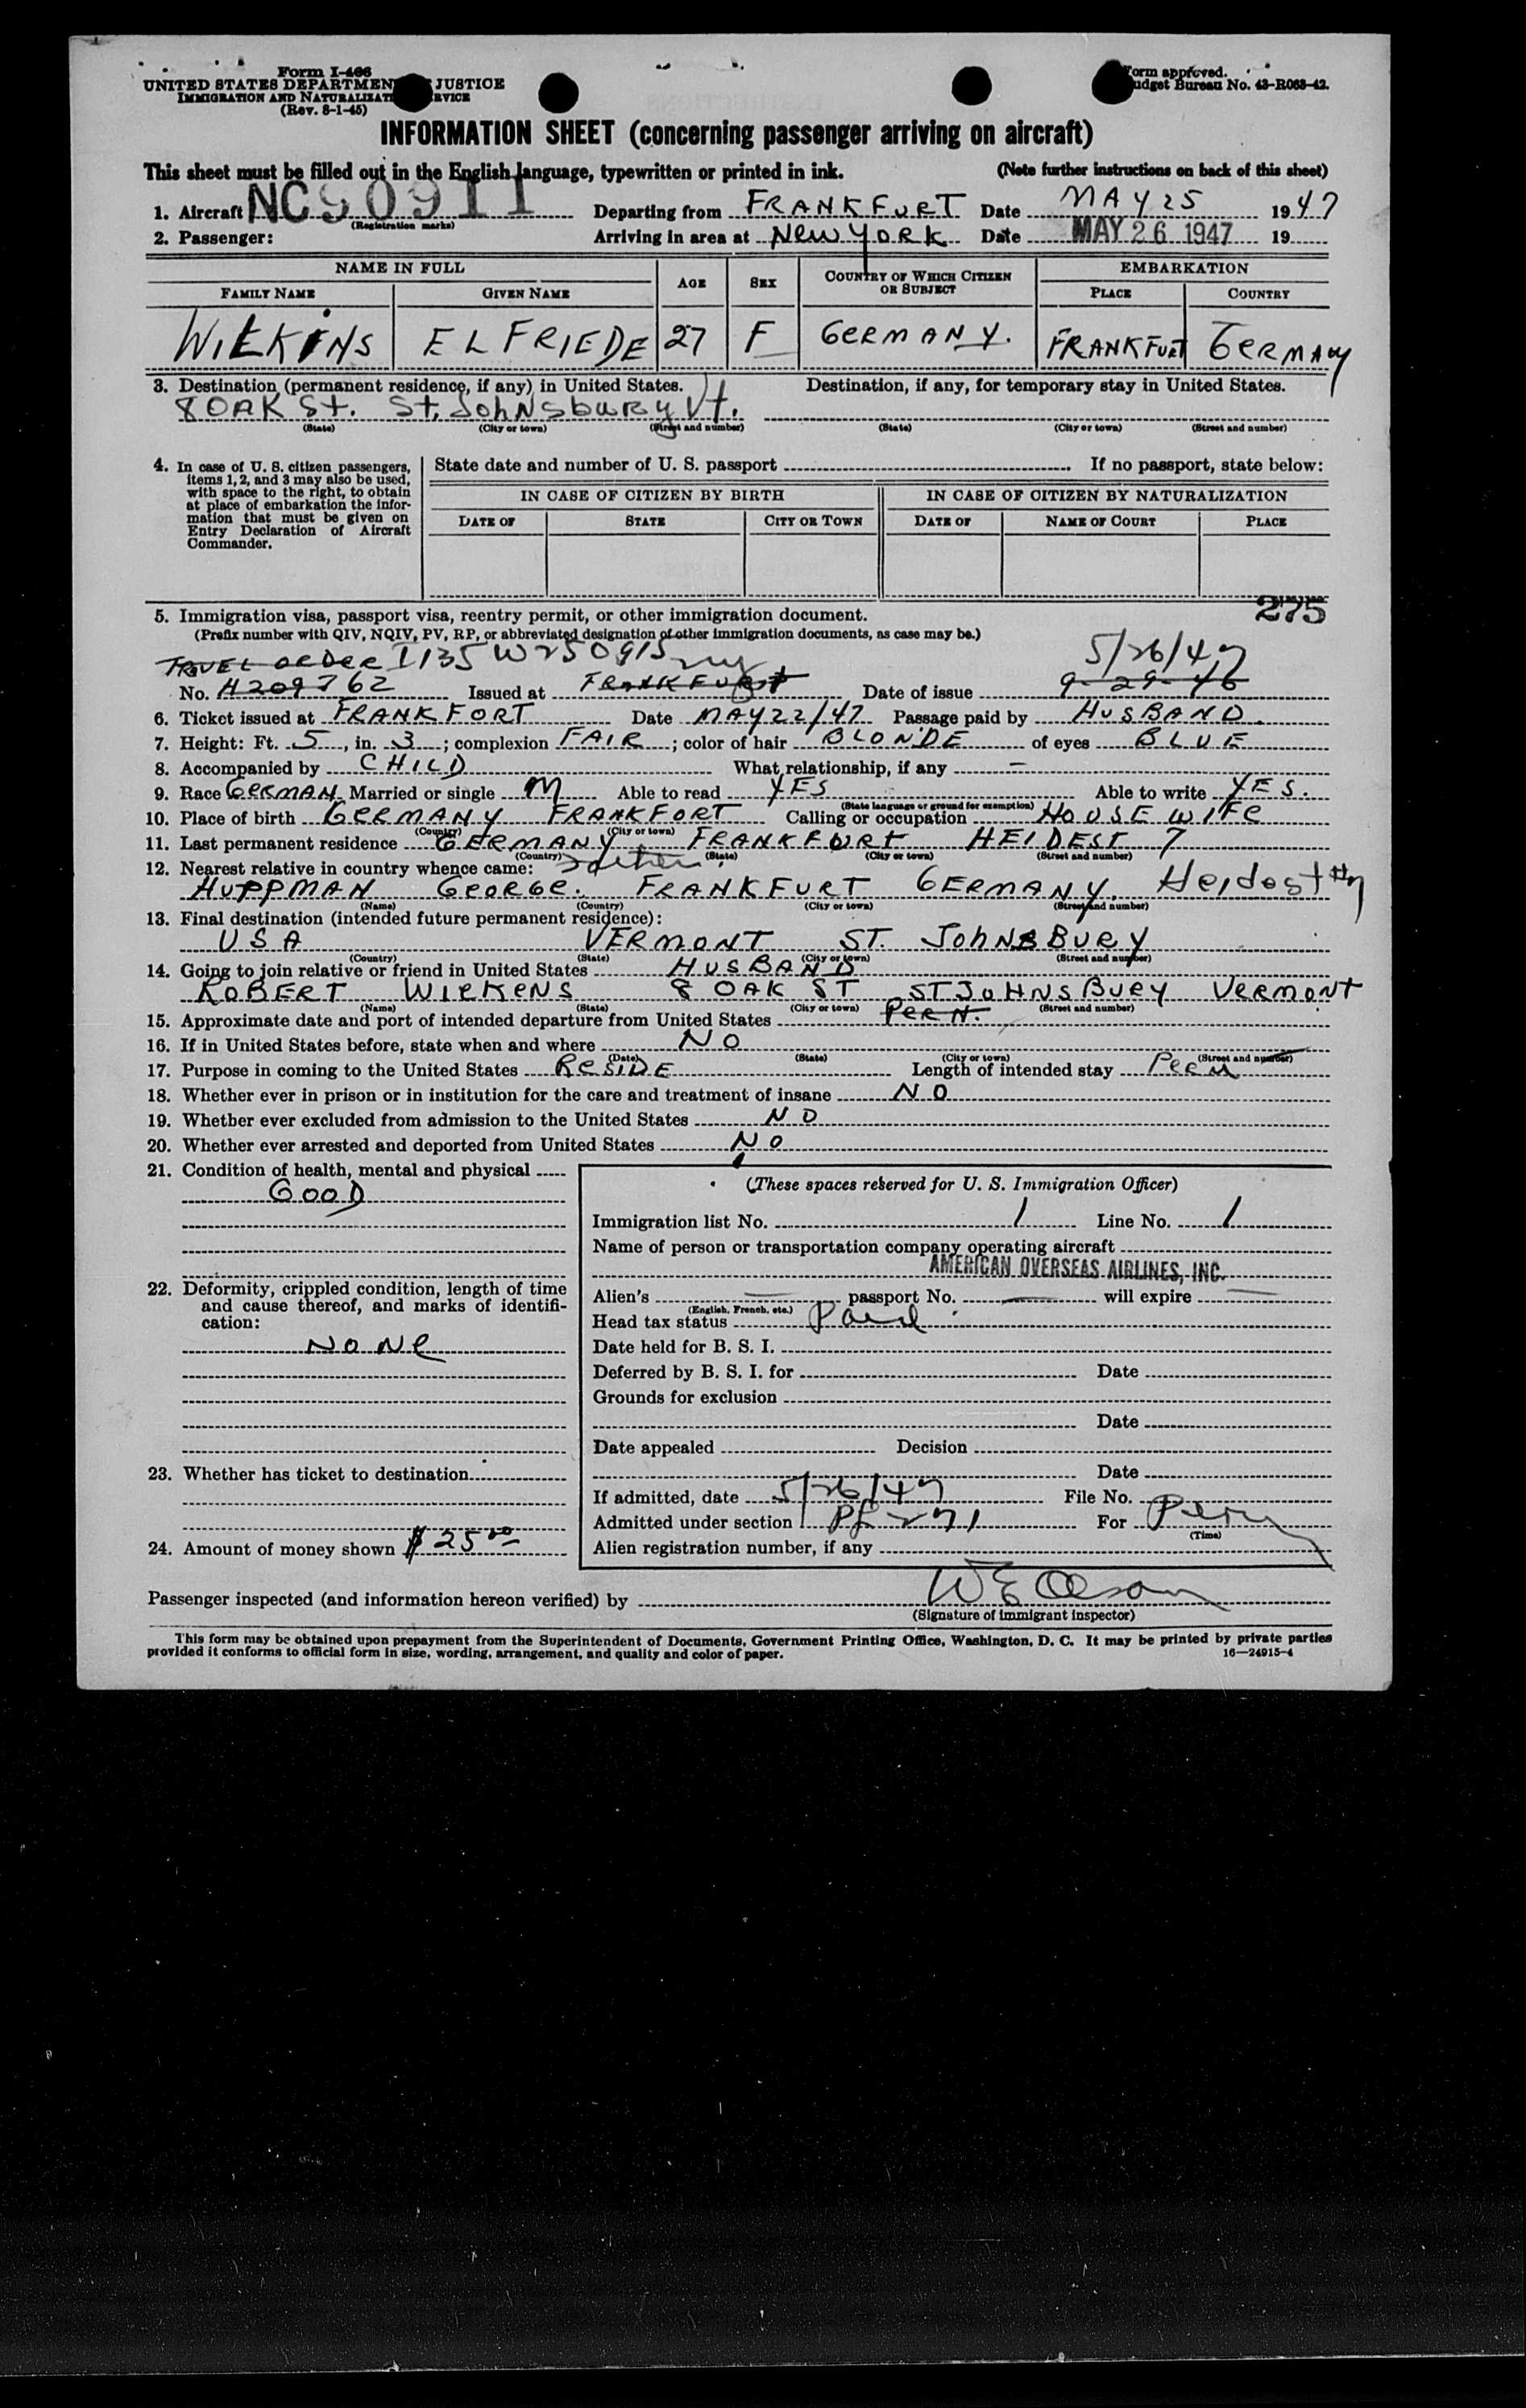 Form I-466
UNITED STATES DEPARTMENT JUSTICE
IMMIGRATION AND NATURALIZATION SERVICE
(Rev. 8-1-45)
Form approved.
Budget Bureau No. 43-R063-42.
INFORMATION SHEET (concerning passenger arriving on aircraft)
This sheet must be filled out in the English language, typewritten or printed in ink. (Note further instructions on back of this sheet)
1. Aircraft NC90911 Departing from FRANKFURT Date MAY 25 1947
(Registration marks)
2. Passenger: Arriving in area at NEW YORK Date MAY 26 1947 19
NAME IN FULL AGE SEX COUNTRY OF WHICH CITIZEN OR SUBJECT EMBARKATION
FAMILY NAME GIVEN NAME PLACE COUNTRY
WILKINS ELFRIEDE 27 F GERMANY. FRANKFURT GERMANY
3. Destination (permanent residence, if any) in United States. Destination, if any, for temporary stay in United States.
8 OAK St. St. JOHNSBURY Vt.
(State) (City or town) (Street and number) (State) (City or town) (Street and number)
4. In case of U. S. citizen passengers, items 1, 2, and 3 may also be used, with space to the right, to obtain at place of embarkation the information that must be given on Entry Declaration of Aircraft Commander.
State date and number of U. S. passport If no passport, state below:
IN CASE OF CITIZEN BY BIRTH IN CASE OF CITIZEN BY NATURALIZATION
DATE OF STATE CITY OR TOWN DATE OF NAME OF COURT PLACE
5. Immigration visa, passport visa, reentry permit, or other immigration document. 275
(Prefix number with QIV, NQIV, PV, RP, or abbreviated designation of other immigration documents, as case may be.)
TRAVEL ORDER I 135 W250915 NY 5/26/47
No. H209762 Issued at FRANKFURT Date of issue 9-29-46
6. Ticket issued at FRANKFORT Date MAY 22/47 Passage paid by HUSBAND.
7. Height: Ft. 5, in. 3; complexion FAIR; color of hair BLONDE of eyes BLUE
8. Accompanied by CHILD What relationship, if any –
9. Race GERMAN Married or single M Able to read YES Able to write YES.
(State language or ground for exemption)
10. Place of birth GERMANY FRANKFORT Calling or occupation HOUSEWIFE
(Country) (City or town)
11. Last permanent residence GERMANY FRANKFURT HEIDEST 7
(Country) (State) (City or town) (Street and number)
12. Nearest relative in country whence came: Father
HUPPMAN GEORGE. FRANKFURT GERMANY. Heidest #7
(Name) (Country) (City or town) (Street and number)
13. Final destination (intended future permanent residence):
USA VERMONT ST. JOHNSBURY
(Country) (State) (City or town) (Street and number)
14. Going to join relative or friend in United States HUSBAND
ROBERT WILKENS 8 OAK ST ST JOHNSBURY VERMONT
(Name) (State) (City or town) (Street and number)
15. Approximate date and port of intended departure from United States PERM.
16. If in United States before, state when and where NO
(Date) (State) (City or town) (Street and number)
17. Purpose in coming to the United States RESIDE Length of intended stay PERM
18. Whether ever in prison or in institution for the care and treatment of insane NO
19. Whether ever excluded from admission to the United States NO
20. Whether ever arrested and deported from United States NO
21. Condition of health, mental and physical
GOOD
22. Deformity, crippled condition, length of time and cause thereof, and marks of identification:
NONE
23. Whether has ticket to destination
24. Amount of money shown $25 00
(These spaces reserved for U. S. Immigration Officer)
Immigration list No. 1 Line No. 1
Name of person or transportation company operating aircraft
AMERICAN OVERSEAS AIRLINES, INC.
Alien's — passport No. — will expire —
(English, French, etc.)
Head tax status Paid
Date held for B. S. I.
Deferred by B. S. I. for Date
Grounds for exclusion
Date
Date appealed Decision
Date
If admitted, date 5/26/47 File No.
Admitted under section PL 271 For Perm
(Time)
Alien registration number, if any
Passenger inspected (and information hereon verified) by W E Olson
(Signature of immigrant inspector)
This form may be obtained upon prepayment from the Superintendent of Documents, Government Printing Office, Washington, D. C. It may be printed by private parties
provided it conforms to official form in size, wording, arrangement, and quality and color of paper. 16—24915-4